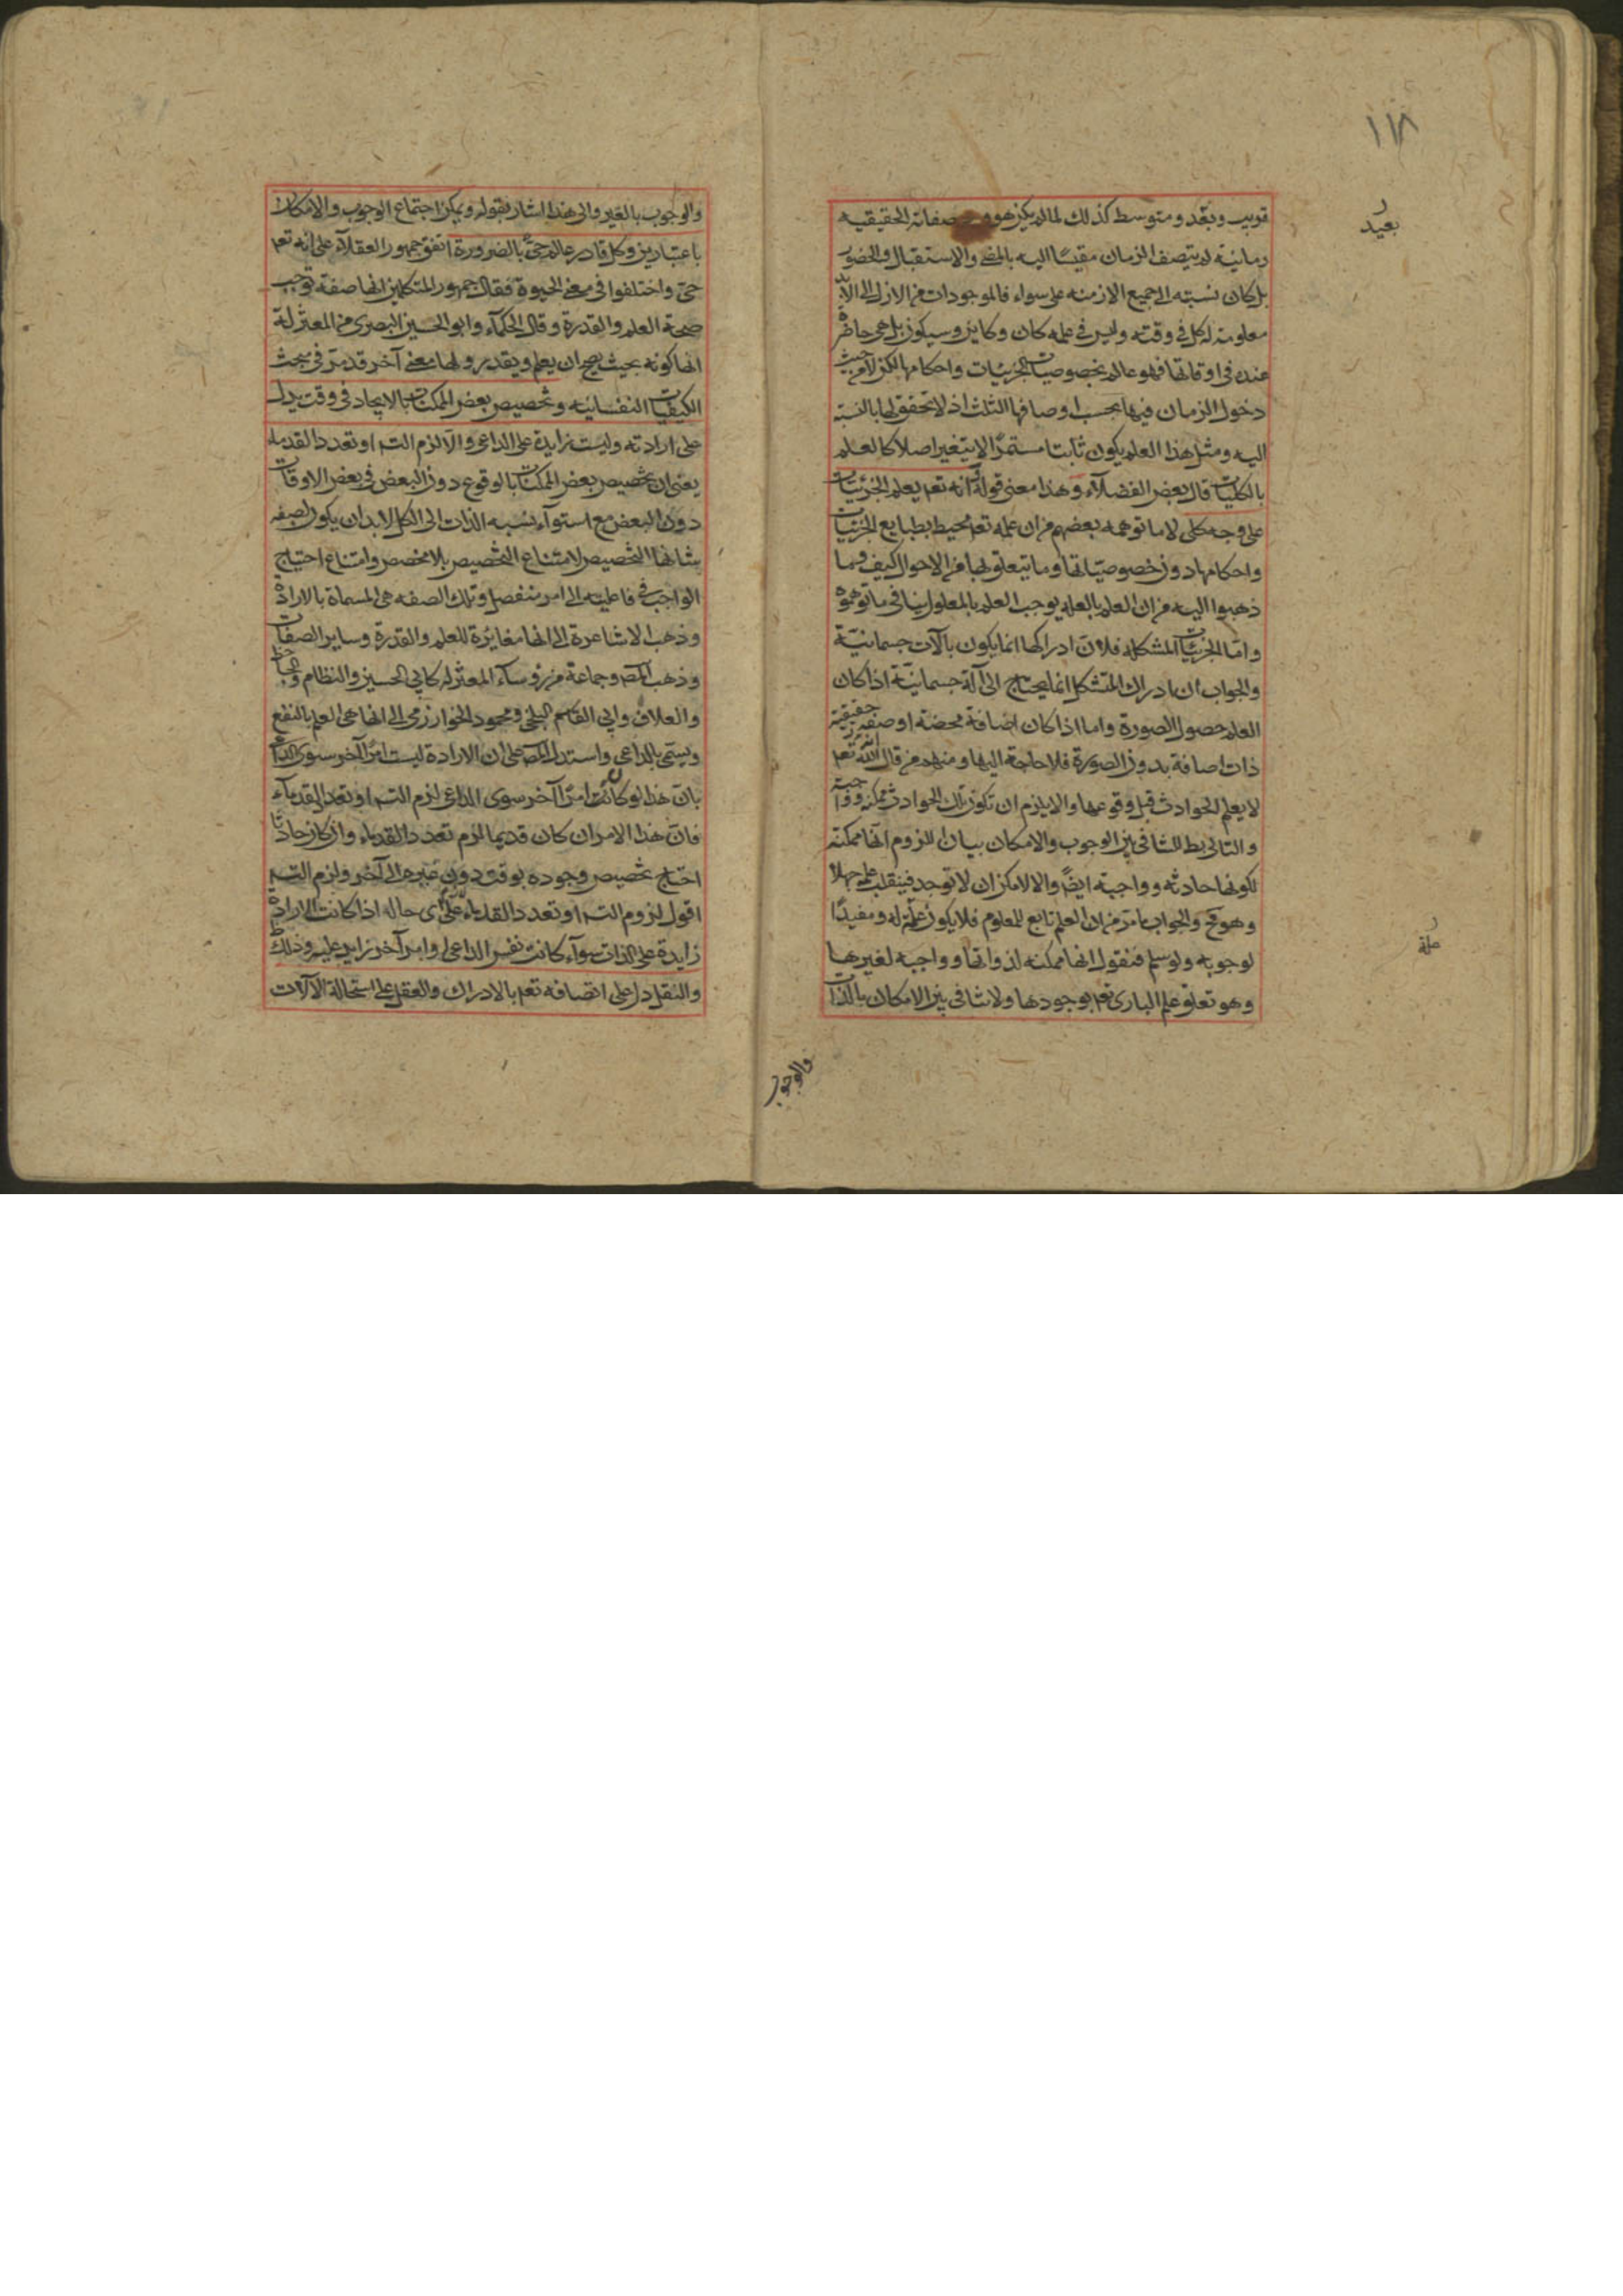 ١٧٨
قريب وبعد ومتوسط كذلك لما لم يكن هو و صفاته الحقيقية
بعيد
زمانية لم يتصف الزمان مقيسًا اليه بالمضى والاستقبال والحضور
بل كان نسبته الى جميع الازمنة على سواء فالموجودات من الازل الى الابد
معلومة له كل فى وقته وليس فى علمه كان وكاين وسيكون بل هى حاضرة
عنده فى اوقاتها فهو عالم بخصوصيات الجزئيات واحكامها لكن لا من حيث
دخول الزمان فيها بحسب اوصافها الثلث اذ لا تحقق لها بالنسبة
اليه ومثل هذا العلم يكون ثابتا مستمرًا لا يتغير اصلا كالعلم
بالكليات قال بعض الفضلاء وهذا معنى قولهم انه تعم يعلم الجزئيات
على وجه كلى لا ما توهمه بعضهم من ان علمه تعم محيط بطبايع الجزئيات
واحكامها دون خصوصياتها وما يتعلق بها من الاحوال كيف وما
ذهبوا اليه من ان العلم بالعلة يوجب العلم بالمعلول ينافى ما توهموه
واما الجزئيات المشكلة فلان ادراكها انما يكون بآلات جسمانية
والجواب ان ادراك المتشكل انما يحتاج الى آلة جسمانية اذا كان
العلم حصول الصورة واما اذا كان اضافة محضة او صفة حقيقية
ذات اضافة بدون الصورة فلا حاجة اليها ومنهم من قال الله تعم
لا يعلم الحوادث قبل وقوعها والا يلزم ان تكون تلك الحوادث ممكنة وواجبة
والتالى بط للتنافى بين الوجوب والامكان بيان اللزوم انها ممكنة
لكونها حادثة وواجبة ايضًا والا لامكن ان لا توجد فينقلب علمه جهلا
وهو مح والجواب ما مر من ان العلم تابع للمعلوم فلا يكون علة له ومفيدًا
علة
لوجوبه ولو سلم فنقول انها ممكنة لذواتها وواجبة لغيرها
وهو تعلق علم البارى تعم بوجودها ولا تنافى بين الامكان بالذات
والوجوب
والوجوب بالغير والى هذا اشار بقوله ويمكن اجتماع الوجوب والامكان
باعتبارين وكل قادر عالم حىّ بالضرورة اتفق جمهور العقلاء على انه تعم
حىّ واختلفوا فى معنى الحيوة فقال جمهور المتكلمين انها صفة توجب
صحة العلم والقدرة وقال الحكماء وابو الحسين البصرى من المعتزلة
انها كونه بحيث يصح ان يعلم ويقدر ولها معنى آخر قد مرّ فى مبحث
الكيفيات النفسانيه وتخصيص بعض الممكنات بالايجاد فى وقت يدل
على ارادته وليست زايدة على الداعى والا لزم التس او تعدد القدماء
يعنى ان تخصيص بعض الممكنات بالوقوع دون البعض فى بعض الاوقات
دون البعض مع استواء نسبة الذات الى الكل لابد ان يكون لصفة
شانها التخصيص لامتناع التخصيص بلا مخصص وامتناع احتياج
الواجب فى فاعليته الى امر منفصل وتلك الصفه هى المسماة بالارادة
وذهب الاشاعرة الى انها مغايرة للعلم والقدرة وساير الصفات
وذهب المص وجماعة من رؤساء المعتزلة كابى الحسين والنظام والجاحظ
والعلاف وابى القاسم البلخى ومحمود الخوارزمى الى انها هى العلم بالنفع
ويسمى بالداعى واستدل المص على ان الارادة ليست امرًا آخر سوى الداعى
بان هذا لو كانت امرًا آخر سوى الداعى لزم التس او تعدد القدماء
فان هذا الامر ان كان قديما لزم تعدد القدماء وان كان حادثًا
احتاج تخصيص وجوده بوقت دون غيره الى آخر ولزم التس
اقول لزوم التس او تعدد القدماء على اى حاله اذا كانت الارادة
زايدة على الذات سواء كانت نفس الداعى او امر آخر زايد عليه وذلك
والنقل دل على اتصافه تعم بالادراك والعقل على استحالة الآلات